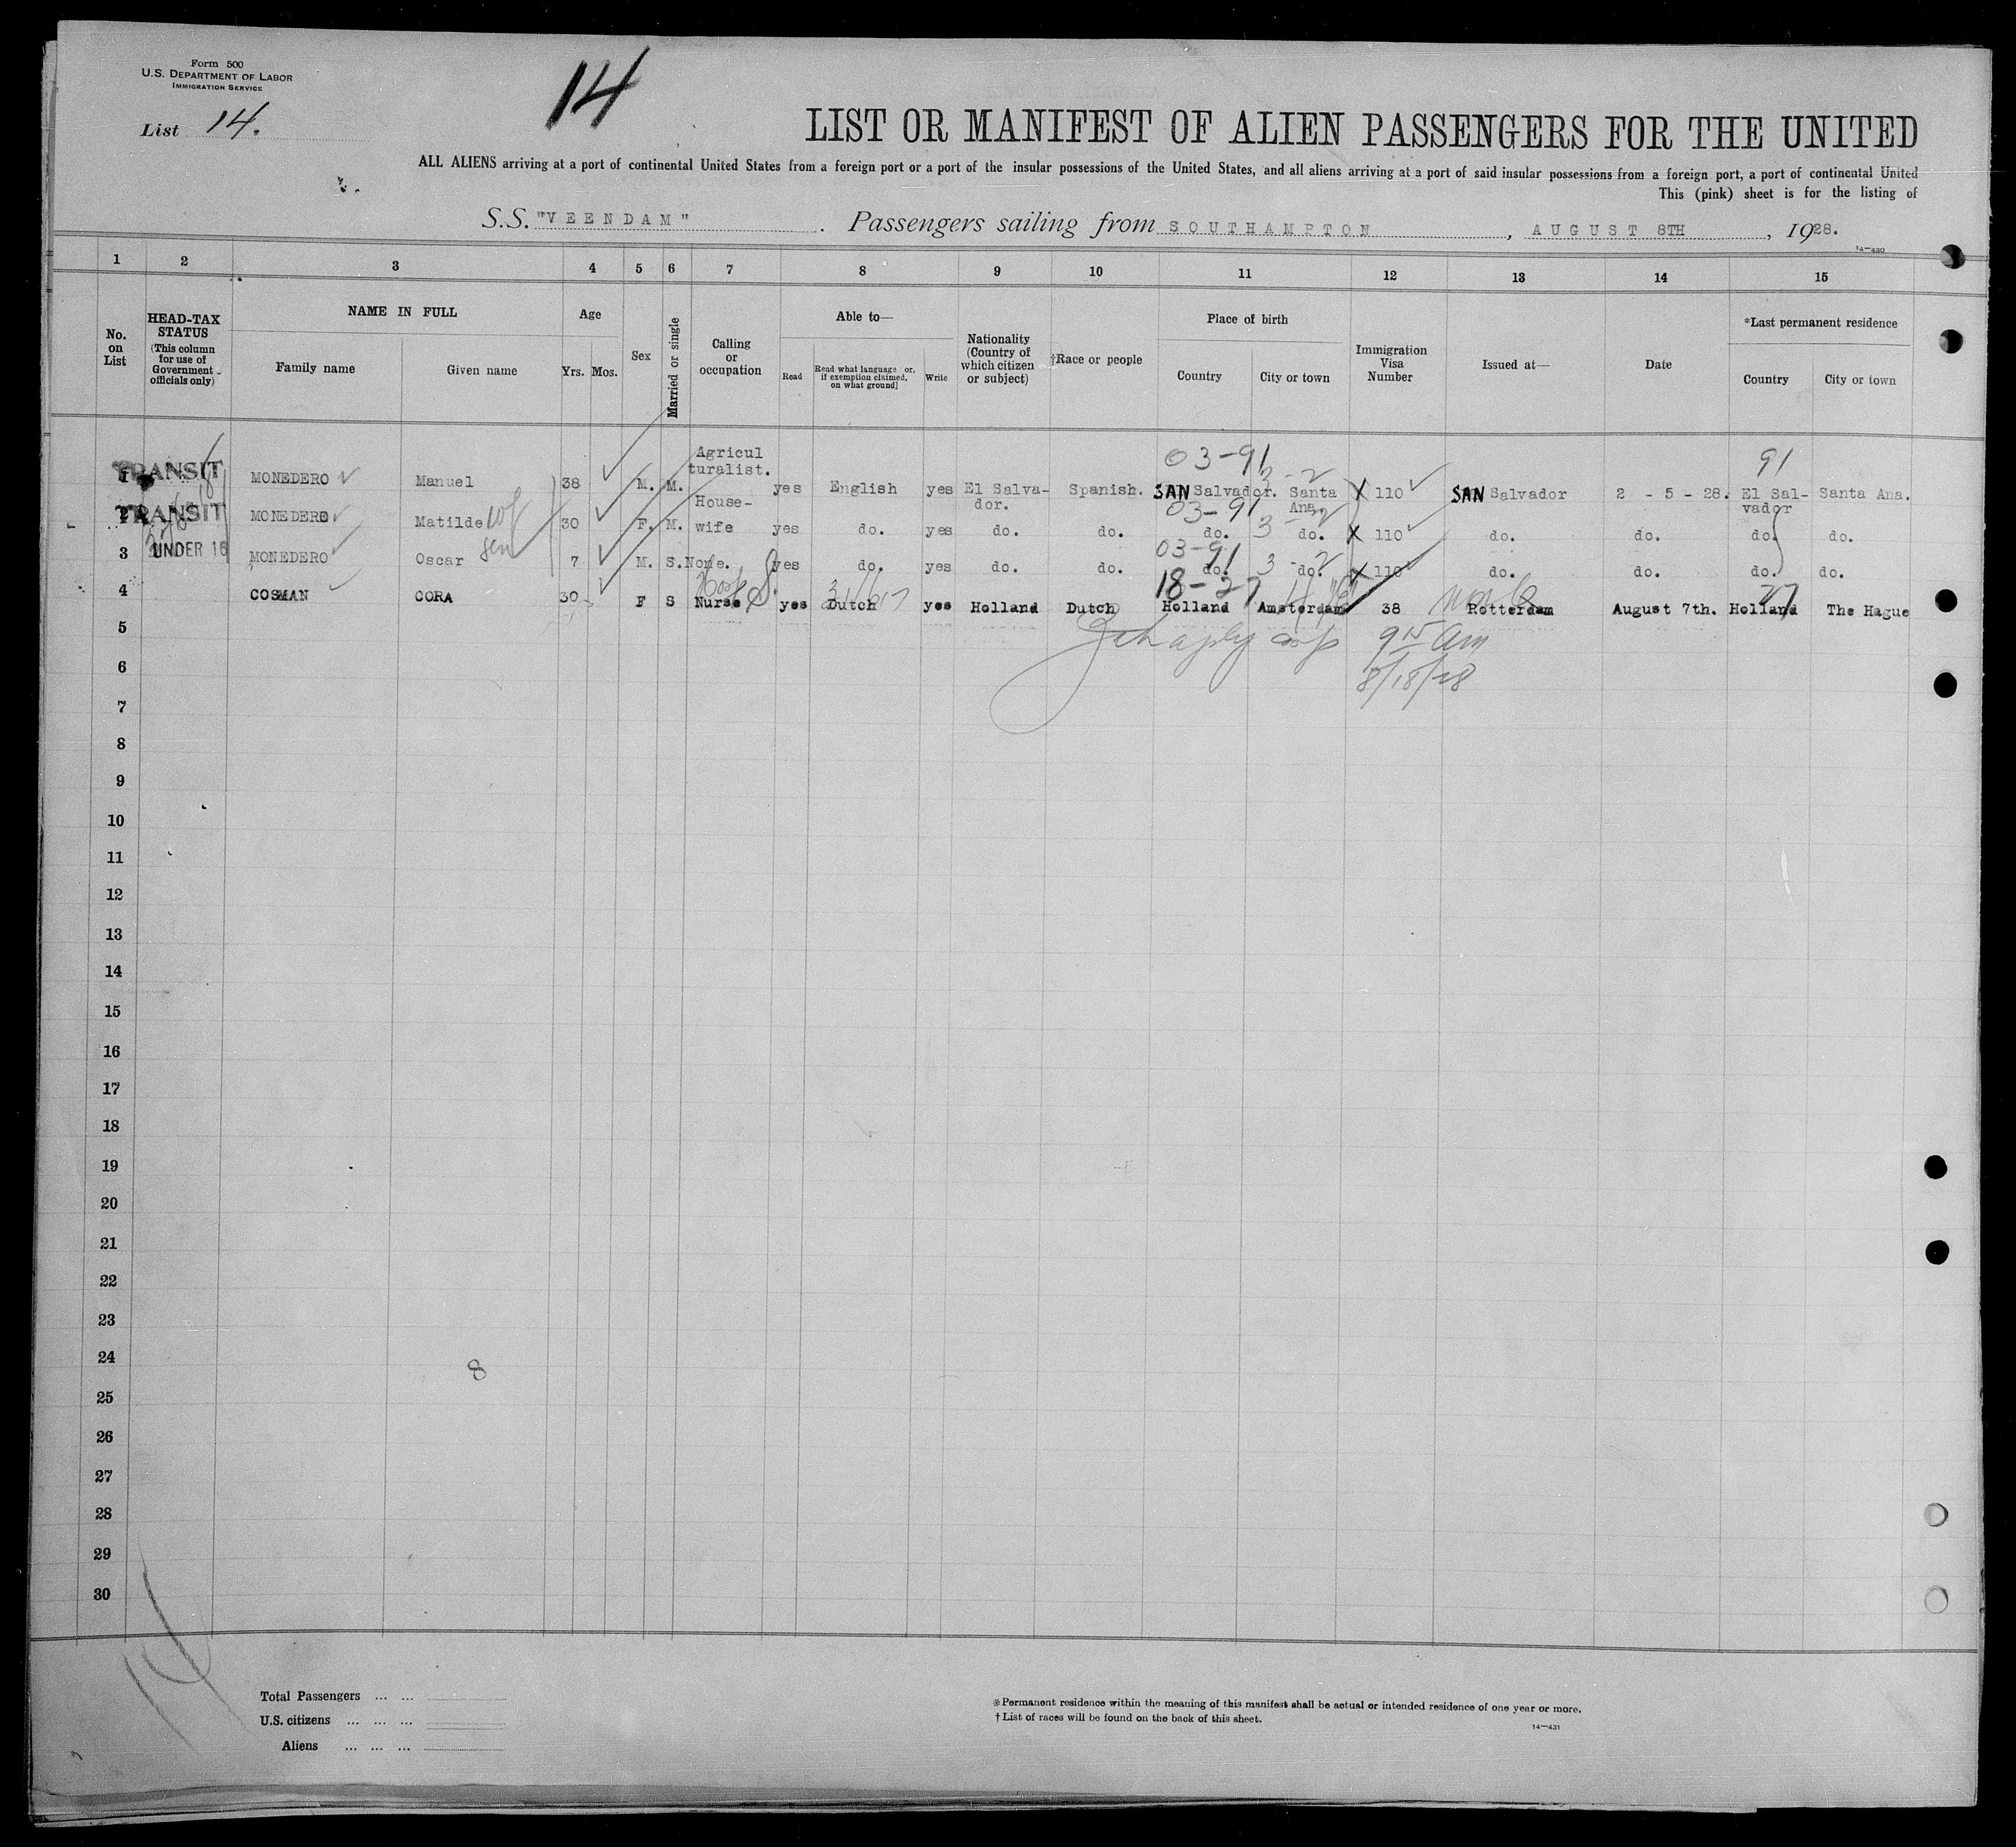 Form 500
U.S. DEPARTMENT OF LABOR
IMMIGRATION SERVICE
List 14.
14
LIST OR MANIFEST OF ALIEN PASSENGERS FOR THE UNITED
ALL ALIENS arriving at a port of continental United States from a foreign port or a port of the insular possessions of the United States, and all aliens arriving at a port of said insular possessions from a foreign port, a port of continental United
This (pink) sheet is for the listing of
S.S. "VEENDAM". Passengers sailing from SOUTHAMPTON, AUGUST 8TH, 1928.
14—430
1 2 3 4 5 6 7 8 9 10 11 12 13 14 15
No. on List
HEAD-TAX STATUS
(This column for use of Government officials only)
NAME IN FULL
Family name Given name
Age
Yrs. Mos.
Sex
Married or single
Calling or occupation
Able to—
Read
Read what language or, if exemption claimed, on what ground]
Write
Nationality (Country of which citizen or subject)
†Race or people
Place of birth
Country City or town
Immigration Visa Number
Issued at—
Date
*Last permanent residence
Country City or town
03-91 3-2 91
1 TRANSIT MONEDERO Manuel 38 M. M. Agricul turalist. yes English yes El Salva-dor. Spanish. SAN Salvador. Santa Ana. X 110 SAN Salvador 2 - 5 - 28. El Sal-vador Santa Ana.
03-91 3-2
2 TRANSIT MONEDERO Matilde wf 30 F. M. House-wife yes do. yes do. do. do. do. X 110 do. do. do. do.
03-91 3 2
3 UNDER 16 MONEDERO Oscar 7 M. S. None. yes do. yes do. do. do. do. X 110 do. do. do. do.
18-27 27
4 COSMAN CORA 30 F S Nurse yes Dutch yes Holland Dutch Holland Amsterdam 38 Rotterdam August 7th. Holland The Hague
5
9 15 am
6
8/18/28
7
8
9
10
11
12
13
14
15
16
17
18
19
20
21
22
23
24
8
25
26
27
28
29
30
14
Total Passengers ... ...
U.S. citizens ... ... ...
Aliens ... ... ...
*Permanent residence within the meaning of this manifest shall be actual or intended residence of one year or more.
†List of races will be found on the back of this sheet.
14—431